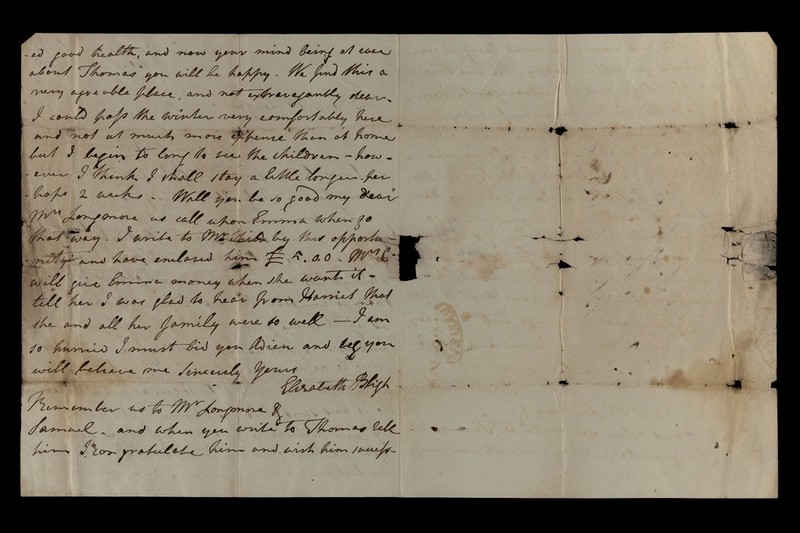 -ed good health, and now your mind being at ease
about Thomas you will be happy. We find this a
very agreeable place, and not extravagantly dear.
I could pass the winter very comfortably here
and not at much more expence than at home
but I begin to long to see the children - how-
-ever I think I shall stay a little longer per
-haps 2 weeks - Will you be so good my dear
Mrs Longmore as call upon Emma when go
that way. I write to Mr by this opportu
-nity and have enclosed him £ 5.00. Mrs C-
will give Emma money when she wants it -
tell her I was glad to hear from Harriet that
she and all her family were so well - I am
so hurried I must bid you Adieu and beg you
will believe me Sincerely Yours
Elizabeth Bligh
Remember us to Mr Longmore &
Samuel - and when you write to Thomas tell
him I congratulate him and wish him success-